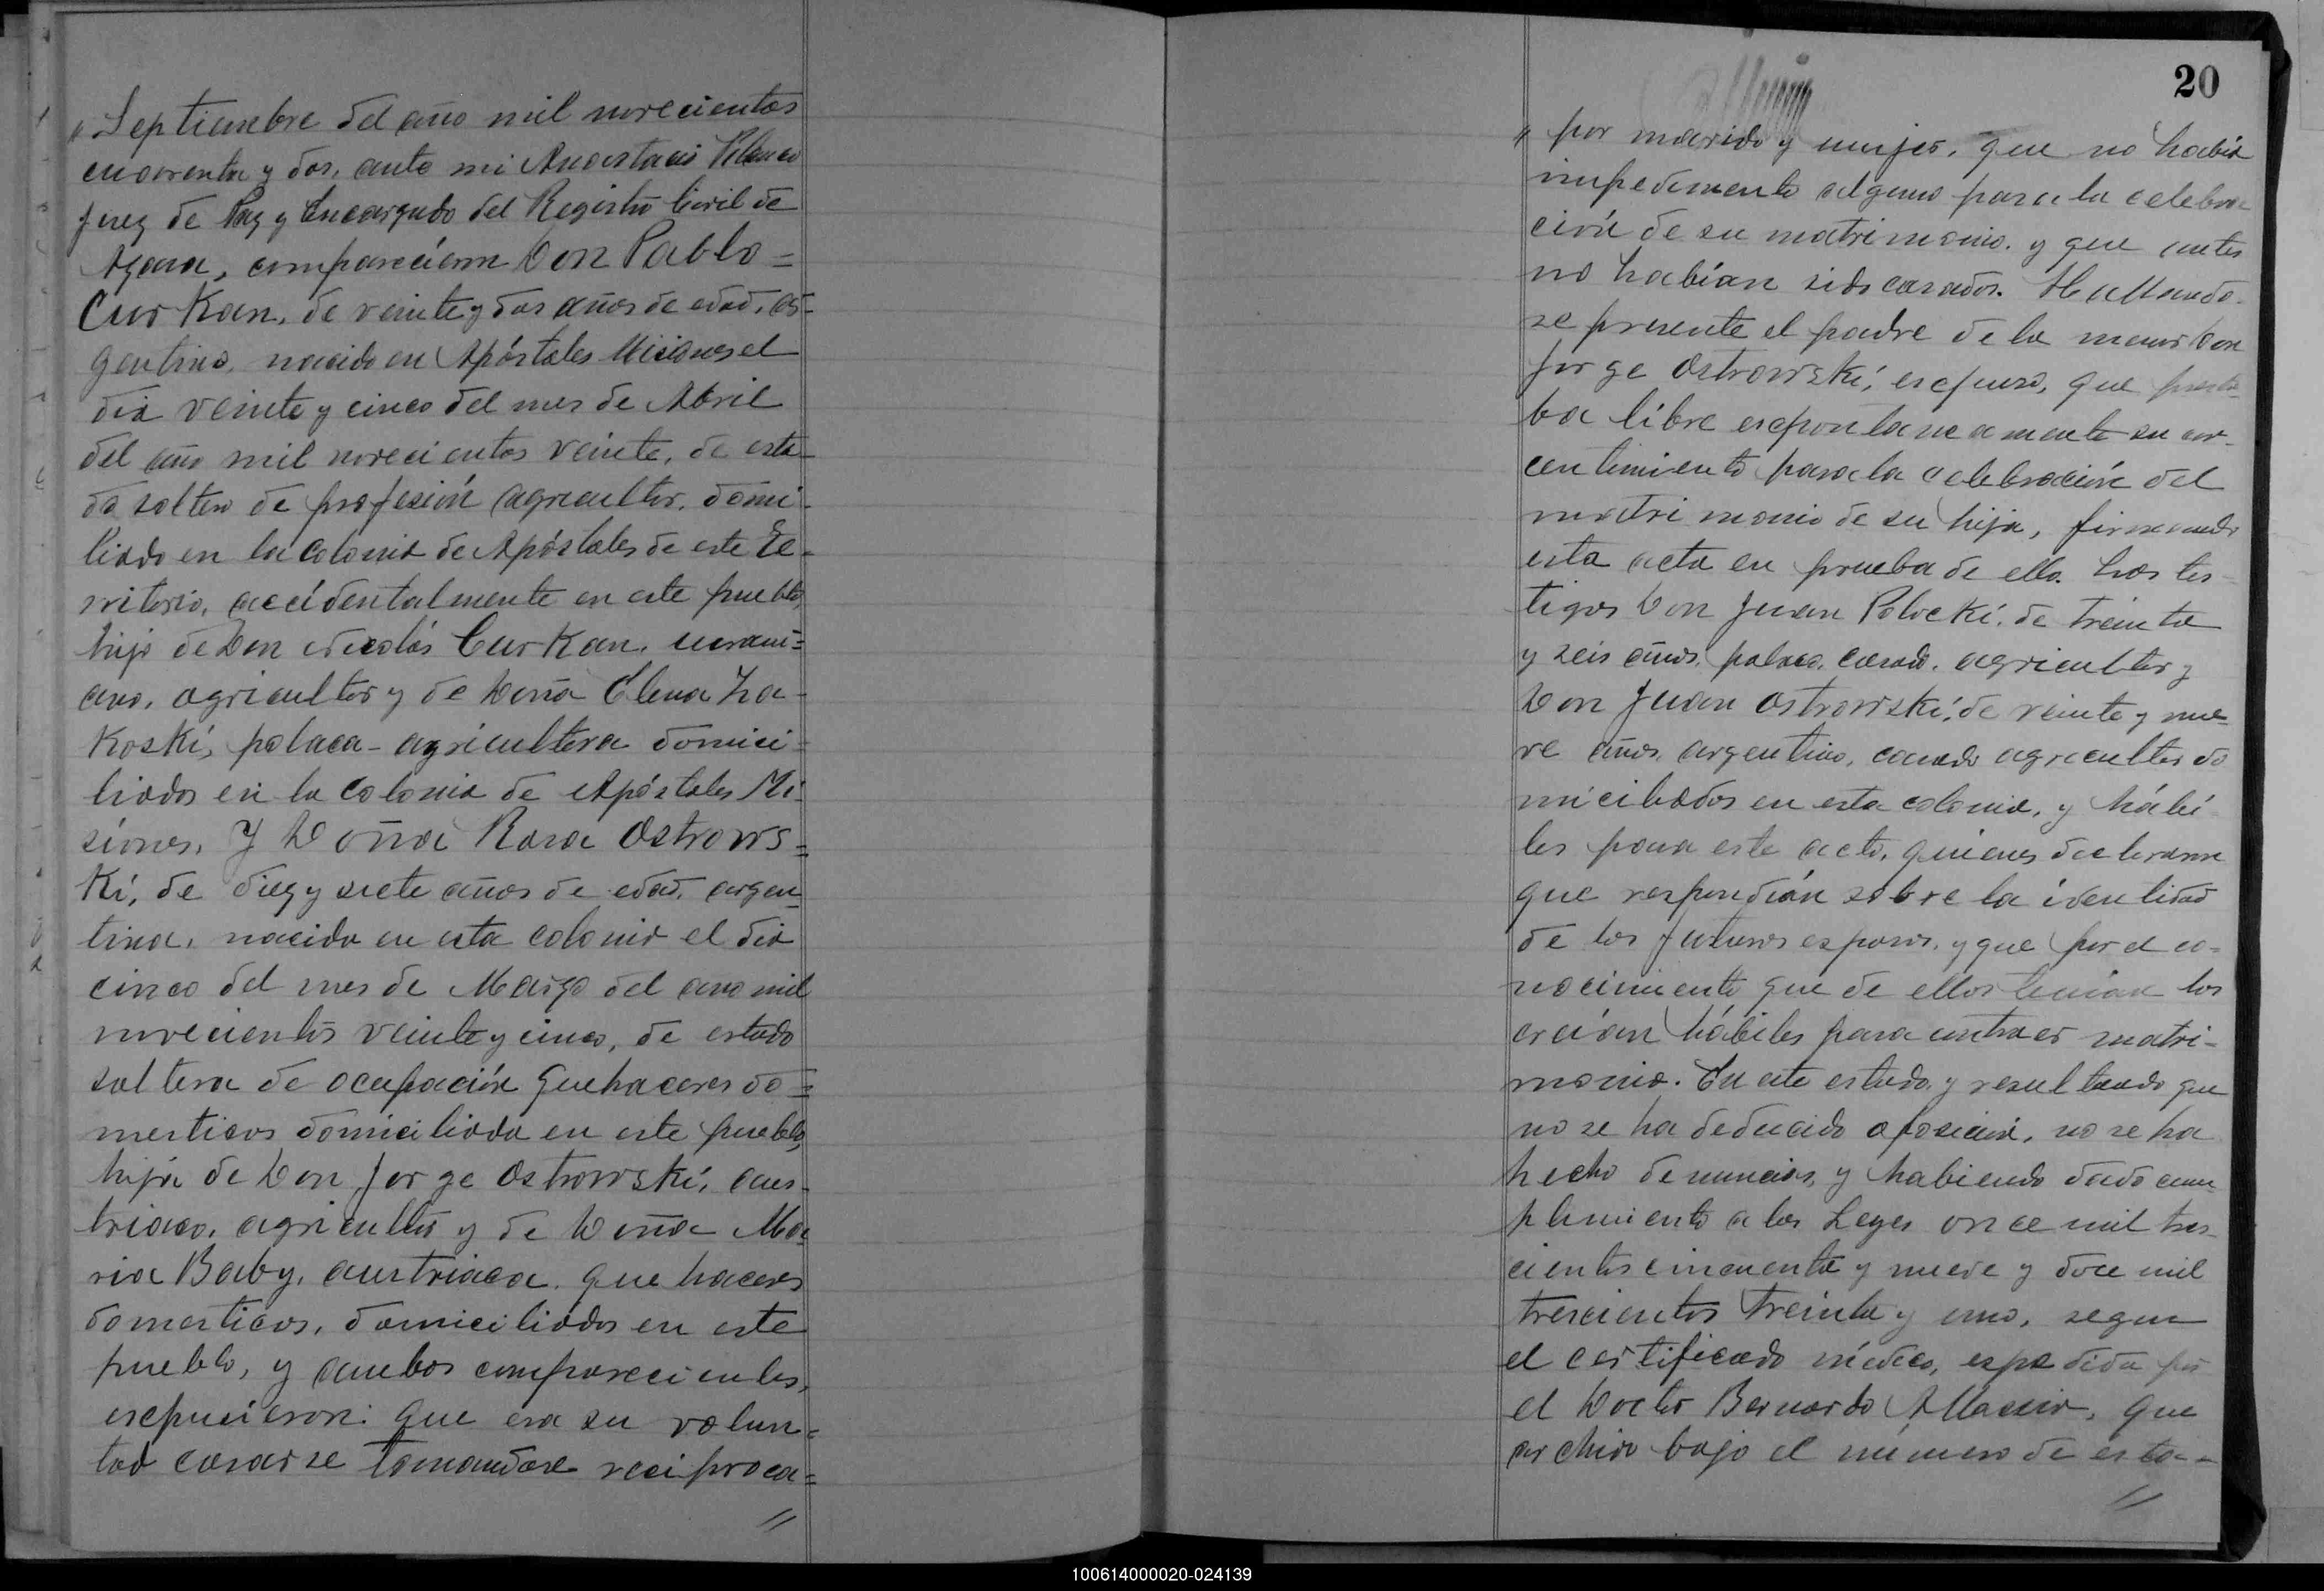 " Septiembre del año mil novecientos
cuarenta y dos, ante mi Anastacio
Juez de Paz y Encargado del Registro Civil de
Azara, comparecieron Don Pablo =
Curkan, de veinte y dos años de edad, ar-
gentino, nacido en Apóstoles Misiones el
dia veinte y cinco del mes de Abril
del año mil novecientos veinte, de esta-
do soltero de profesión agricultor, domi-
liado en la colonia de Apóstoles de este Te-
rritorio, accidentalmente en este pueblo,
hijo de Don Nicolás Curkan, ucrani=
ano, agricultor y de Doña Elena Za-
koski, polaca - agricultora domici-
liados en la Colonia de Apóstoles Mi-
siones, Y Doña Rosa Ostrows=
ki, de diez y siete años de edad, argen-
tina, nacida en esta colonia el dia
cinco del mes de Marzo del ano mil
novecientos veinte y cinco, de estado
soltera de ocupación quehaceres do=
mesticos domiciliada en este pueblo,
hija de Don Jorge Ostrowski, aus-
triaco, agricultor y de Doña Ma-
ria Baby, austriaca, quehaceres
domesticos, domiciliados en este
pueblo, y ambos comparecientes,
espusieron: que era su volun=
tad casarse tomandose reciproca=
//
20
" por marido y mujer, que no habia
impedimento alguno para la celebra-
ción de su matrimonio, y que antes
no habían sido casados. Hallando-
se presente el padre de la menor Don
Jorge Ostrowski, espuso, que presta-
ba libre espontaneamente su con-
centimiento para la celebración del
matrimonio de su hija, firmando
esta acta en prueba de ello. Los tes-
tigos Don Juan Polocki, de treinta
y seis años, polaco, casado, agricultor y
Don Juan Ostrowski, de veinte y nue-
ve años, argentino, casado agricultor do
miciliados en esta colonia, y hábi-
les para este acto, quienes declararon
que respondían sobre la identidad
de los futuros esposos, y que por el co=
nocimiento que de ellos tenían los
creían hábiles para contraer matri-
monio. En este estado, y resultando que
no se ha deducido oposición, no se ha
hecho denuncias, y habiendo dado cum-
plimiento a las Leyes once mil tres-
cientos cincuenta y nueve y doce mil
trescientos treinta y uno, segun
el certificado médico, espedido por
el Doctor Bernardo que
archivo bajo el número de esta-
//
100614000020-024139